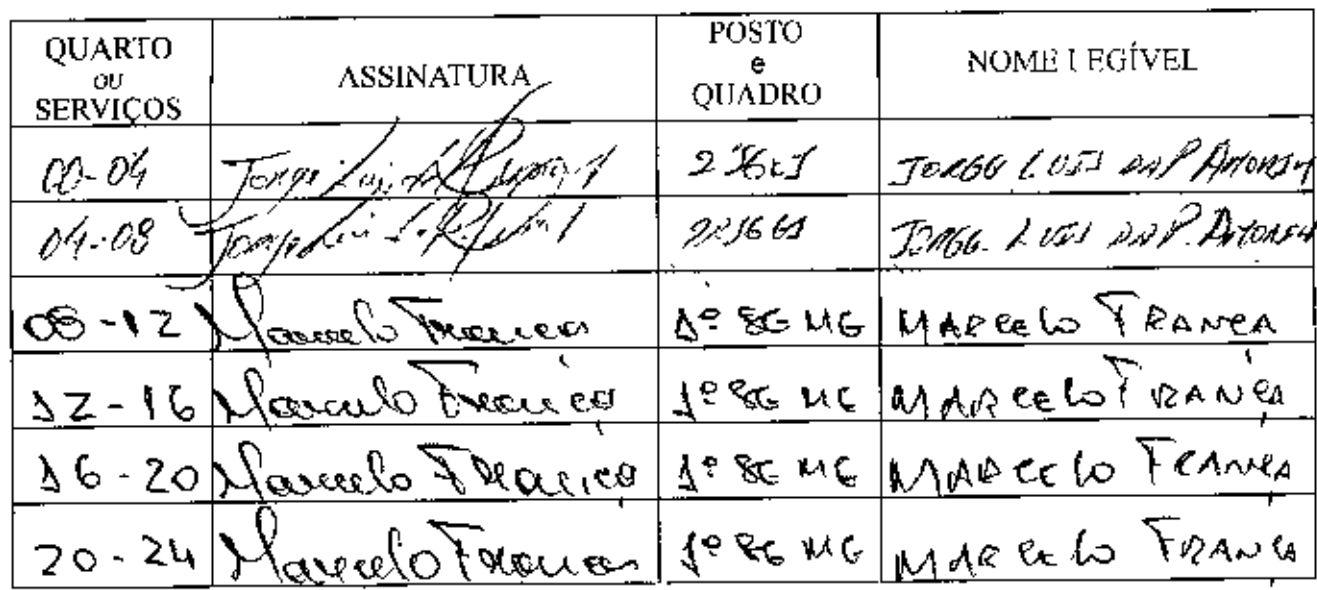 QUARTO OU SERVIÇOS ASSINATURA POSTO e QUADRO NOME LEGÍVEL
00-04 Jorge Luis da P. Amorim JORGE LUIS DA P. AMORIM
04-08 Jorge Luis da P. Amorim JORGE LUIS DA P. AMORIM
08-12 Marcelo França 1º SG MG MARCELO FRANCA
12-16 Marcelo França 1º SG MG MARCELO FRANÇA
16-20 Marcelo França 1º SG MG MARCELO FRANÇA
20-24 Marcelo França 1º SG MG MARCELO FRANÇA